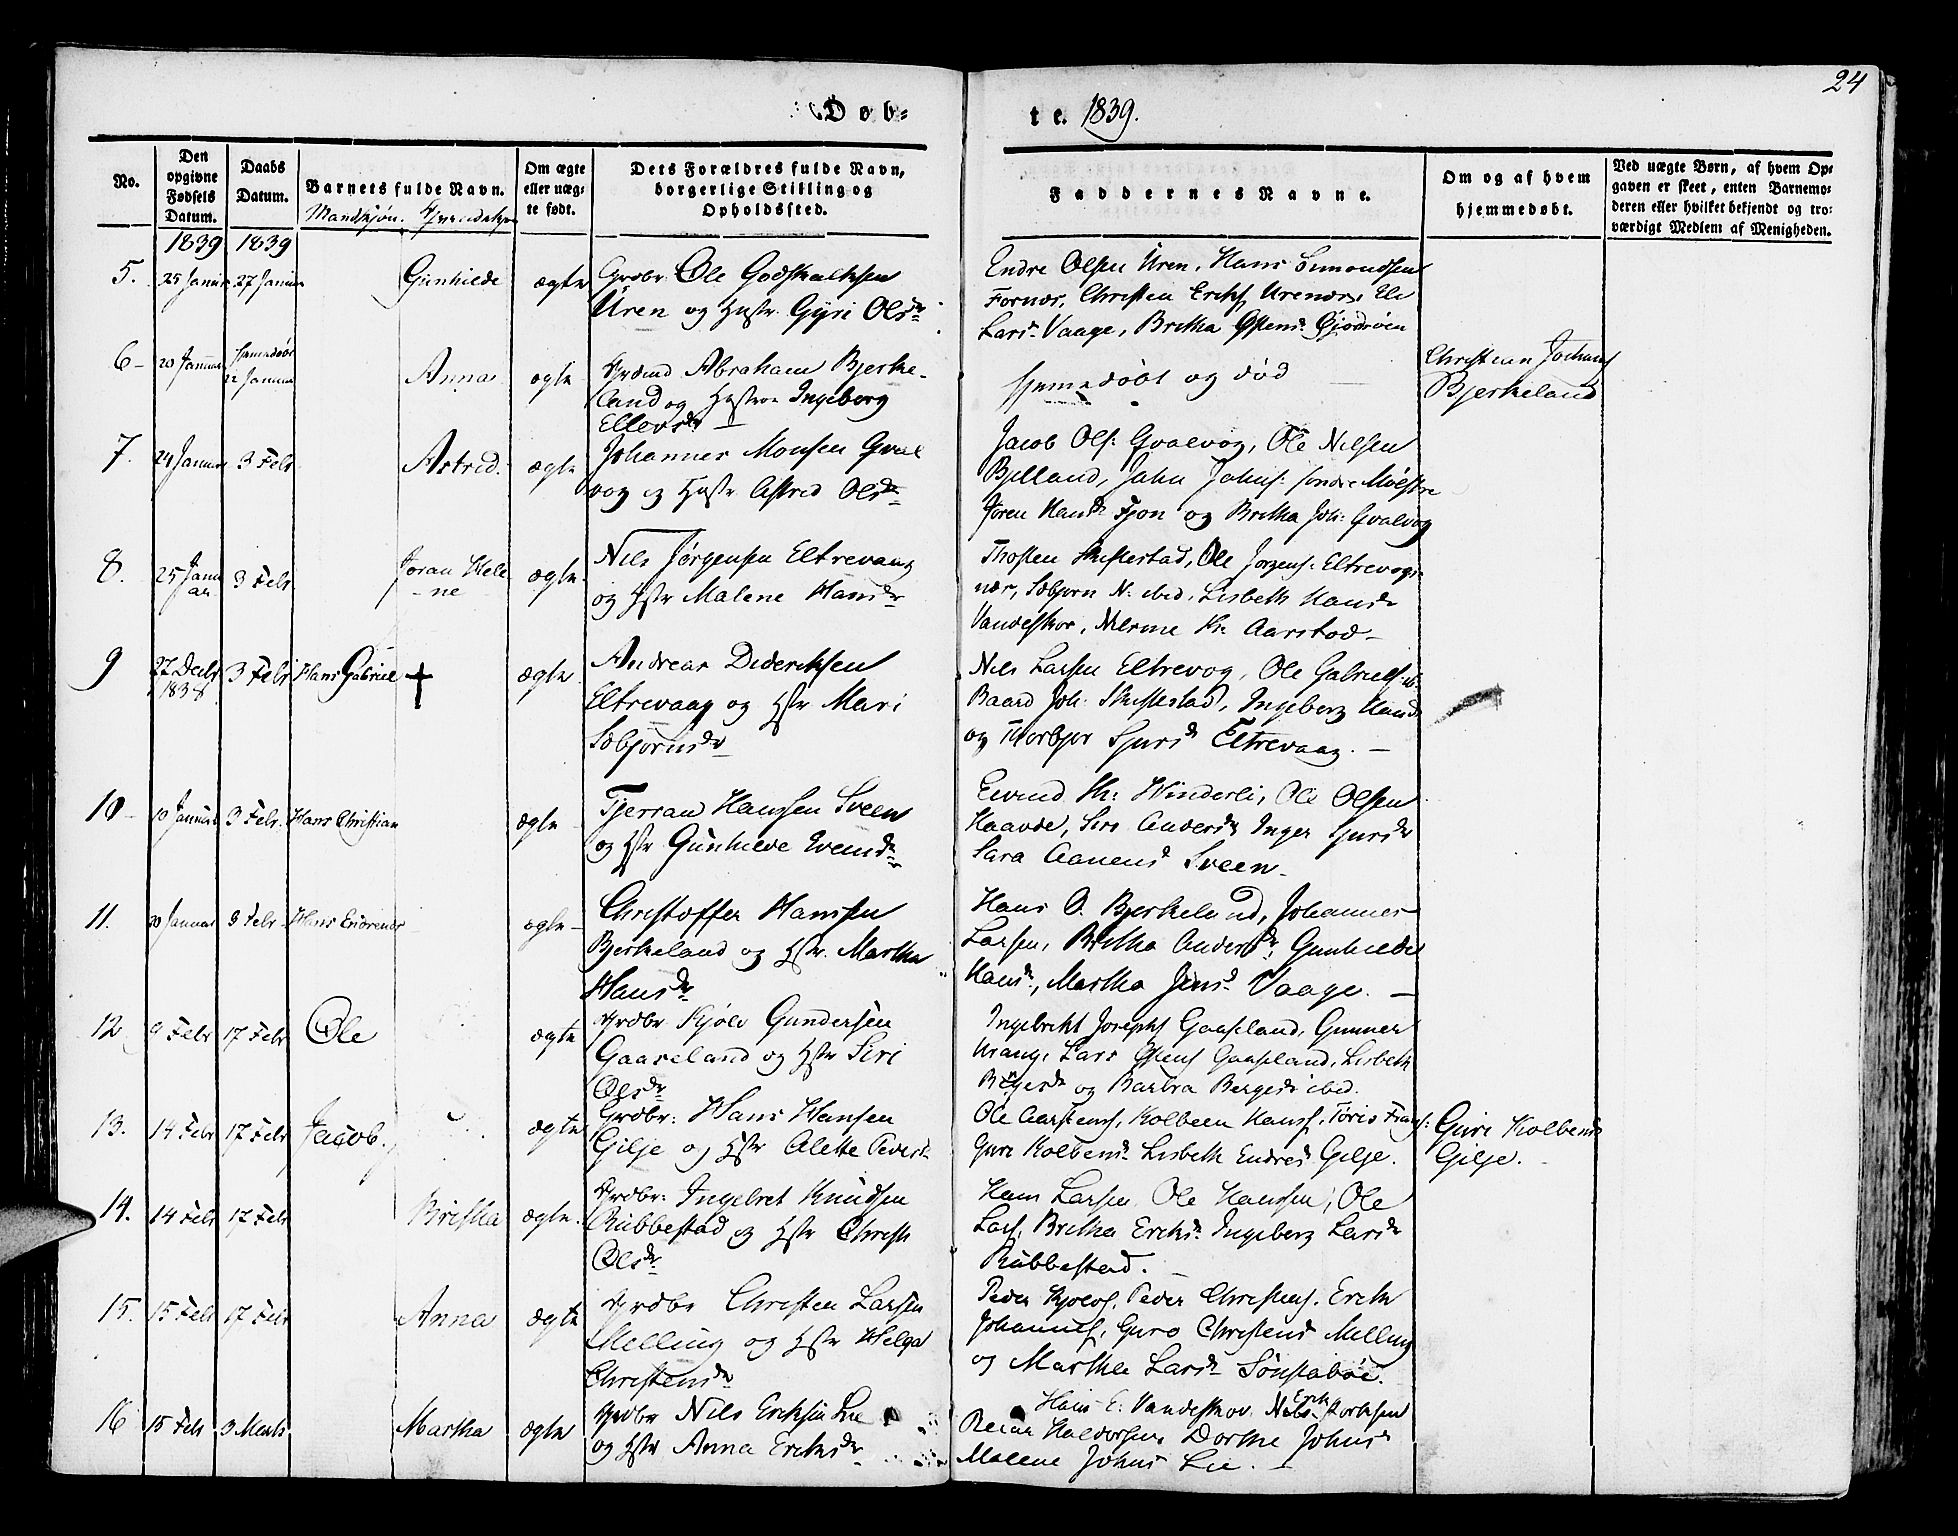 24
Døb=
te. 1839.
No.
Den opgivne Fødsels Datum.
Daabs Datum.
Barnets fulde Navn.
Mandkjøn. Qvindekjøn
Om ægte eller uæg= te født.
Dets Forældres fulde Navn, borgerlige Stilling og Opholdssted.
Faddernes Navne.
Om og af hvem hjemmedøbt.
Ved uægte Børn, af hvem Op= gaven er skeet, enten Barnemo= deren eller hvilket bekjendt og tro= værdigt Medlem af Menigheden.
1839 1839
5. 25 Januar 27 Januar Gunhilde ægte Grdbr. Ole Godskalksen
Uren og Hustr. Gyri Olsdr
Endre Olsen Uren, Hans Simonsen
Fornær, Christen Eriks Urenær, Eli
Larsdr Vaage, Britha Østensdr Gjødsøen
6- 20 Januar hjemmedøbt 22 Januar Anna ægte Abraham Bjerke-
land og Hustroe Ingeborg
Ellevsdr
hjemmedøbt og død
Christian Johans
Bjerkeland
7. 24 Januar 3 Febr Astrid. ægte Johannes Monsen Qval
vog og Hustr Astrid Olsdr
Jacob Ols: Qvalvog, Ole Nilsen
Bjelland, John Johns: søndre Møgstre
Joren Hansdr Fjon og Britha Joh: Qvalvog
8. 25 Janu ar 3 Febr Joran Hele -ne ægte. Nils Jørgensen Eltrevaag
og Hstr Malene Hansdr
Thosten Skiftestad, Ole Jørgens: Eltrevogs
nær, Sæbjørn N: ibid, Lisbeth Hansdr
Vandeskor, Aarstad
9 27 Decbr 1838 3 Febr Hans Gabriel † ægte Andreas Dideriksen
Eltrevaag og Hstr Mari
Sæbjørnsdr
Nils Larsen Eltrevog, Ole Gabriels: ib:
Baard Joh: Skiftestad, Ingeborg Hansdr
og Thorbjor Sjursd Eltrevaag.
10- 10 Januar 3 Febr. Hans Christian ægte Tjerran Hanssen Sveen
og Hstr Gunhilde Evendsdr
Eivind Hinderli, Ole Olsen
Haavde, Siri Andersdr Inger Sjursdr
Sara Aanensd Sveen
11. 30 Januar 3 Febr Hans Endrenær ægte Christoffer Hanssen
Bjerkeland og Hstr. Martha
Hansdr
Hans O. Bjerkeland, Johannes
Larsen, Britha Andersdr, Gunhilde
Hansdr, Martha Jensd Vaage.
12 9 Febr 17 Febr Ole ægte Grdbr Kjøls Gundersen
Gaaseland og Hstr Siri
Olsdr
Ingebrikt Josephs Gaaseland, Gunner
Urang, Lars Østens Gaaseland, Lisbeth
og Barbra Bergesdr ibid.
13. 14 Febr 17 Febr Jacob. ægte Grdbr: Hans Hansen
Gilje og Hstr Alette Pedersd
Ole Aarstens, Kolbeen Hans, Tøris Frans:
Guri Kolbensdr Lisbeth Endresd Gilje.
Guri Kolbensd
Gilje.
14. 14 Febr 17 Febr Britha ægte Grdbr: Ingebret Knudsen
Rubbestad og Hstr Christi
Olsdr
Hans Larsen Ole Hanssen, Ole
Lars, Britha Eriksdr Ingeborg Larsdr
Rubbestad.
15. 15 Febr 17 Febr Anna ægte Grdbr Christen Larsen
Melling og Hstr Helga
Christensdr
Peder Kjøls, Peder Christens. Erik
Johannes, Guro Christensd Melling
og Marthe Larsdr Sønstabøe.
16 15 Febr 3 Marts Martha ægte Grdbr Nils Eriksen Lie
og Hstr Anna Eriksdr
Hans E: Vandeskov, Nils Erik
Reiar Haldorsen Dorthe Johnsd
Malene Johnsd Lie.